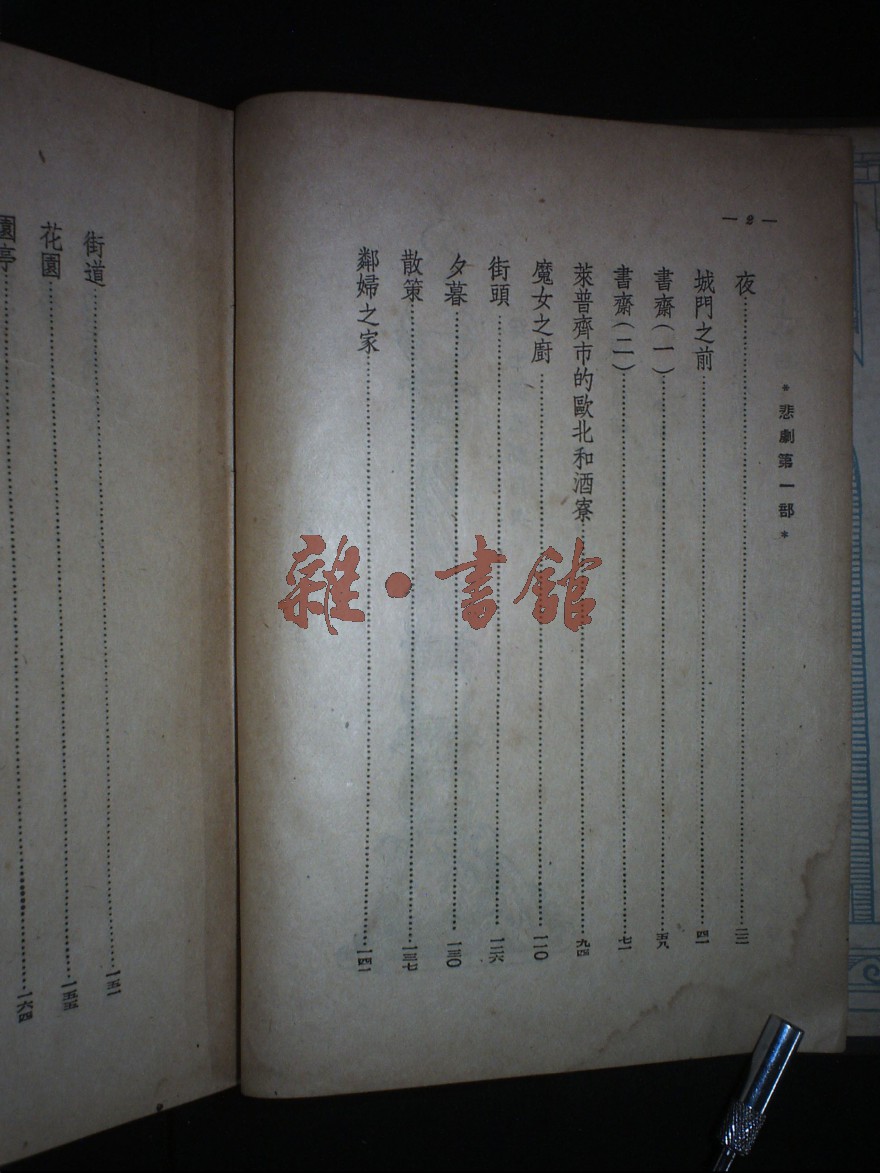 — 2 —
*悲劇第一部*
夜……二二
城門之前……四一
書齋(一)……五九
書齋(二)……七一
萊普齊市的歐北和酒寮……九四
魔女之廚……一一〇
街頭……一二六
夕暮……一三〇
散策……一三七
鄰婦之家……一四一
街道……一五一
花園……一五五
園亭……一六四
雜·書館